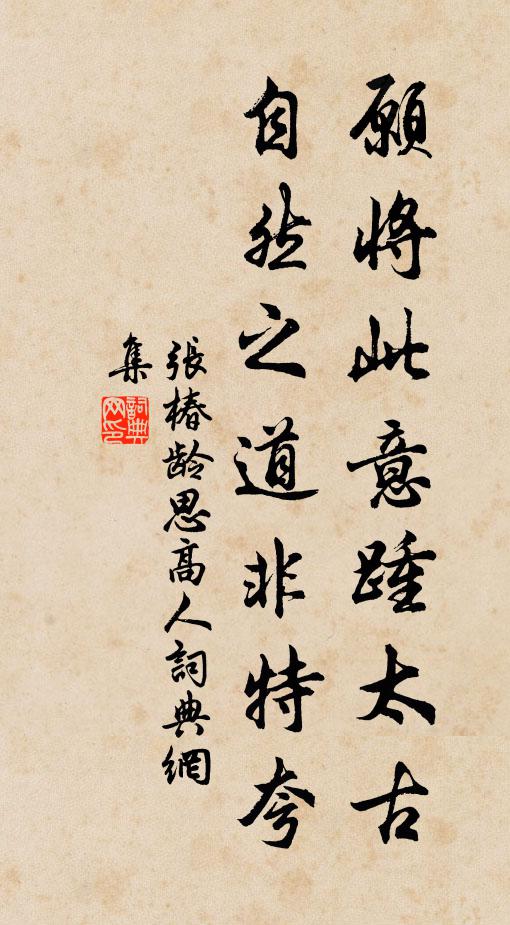 願將此意踵太古
自然之道非特夸
張椿龄思高人詞典網
集
詞典
网印